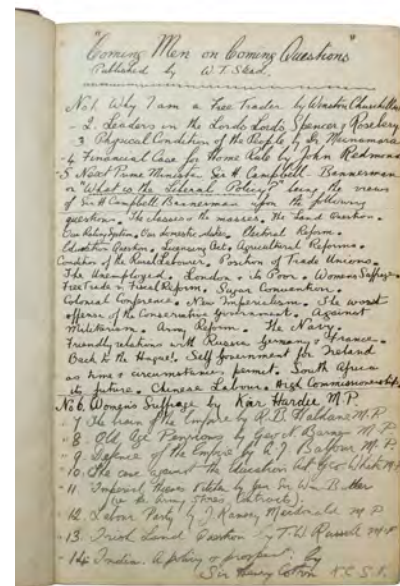 "Coming Men on Coming Questions"
Published by W. T. Stead.
No 1. Why I am a Free Trader by Winston Churchill
- 2. Leaders in the Lords Lords Spencer & Rosebery
3 Physical Condition of the People by Dr Macnamara
- 4 Financial Case for Home Rule by John Redmond
- 5 Next Prime Minister Sir H Campbell-Bannerman
or "What is the Liberal Policy?" being the views
of Sir H Campbell Bannerman upon the following
questions. The classes & the masses. The Land Question.
Our Policy. Our domestic. Electoral Reform.
Education Question. Licensing Act. Agricultural Reforms.
Condition of the Rural Labourer. Position of Trade Unions.
The Unemployed. London & its Poor. Womens Suffrage.
Free Trade v Fiscal Reform. Sugar Convention.
Colonial Conference. New Imperialism. The worst
offense of the Conservative Government. Against
Militarism. Army Reform. The Navy.
Friendly relations with Russia Germany & France.
Back to the Hague!. Self Government for Ireland
as time & circumstances permit. South Africa
its future. Chinese Labour & High Commissionership.
No 6. Women's Suffrage by Kier Hardie M.P.
- 7 The brain of the Empire by R. B. Haldane M.P
- 8. Old Age Pensions by Geo N. Barnes M.P.
- 9. Defence of the Empire by A. J Balfour M.P.
- 10. The case against the Education Act Geo White M.P
- 11. Imperial by Gen Sir Wm Butler
(re the Army Stores Contracts).
- 12. Labor Party by J. Ramsey Macdonald M.P.
- 13. Irish Land Question by T. W. Russell M.P
- 14. India. A policy & prospect. by
Sir Henry Cotton K C S I.